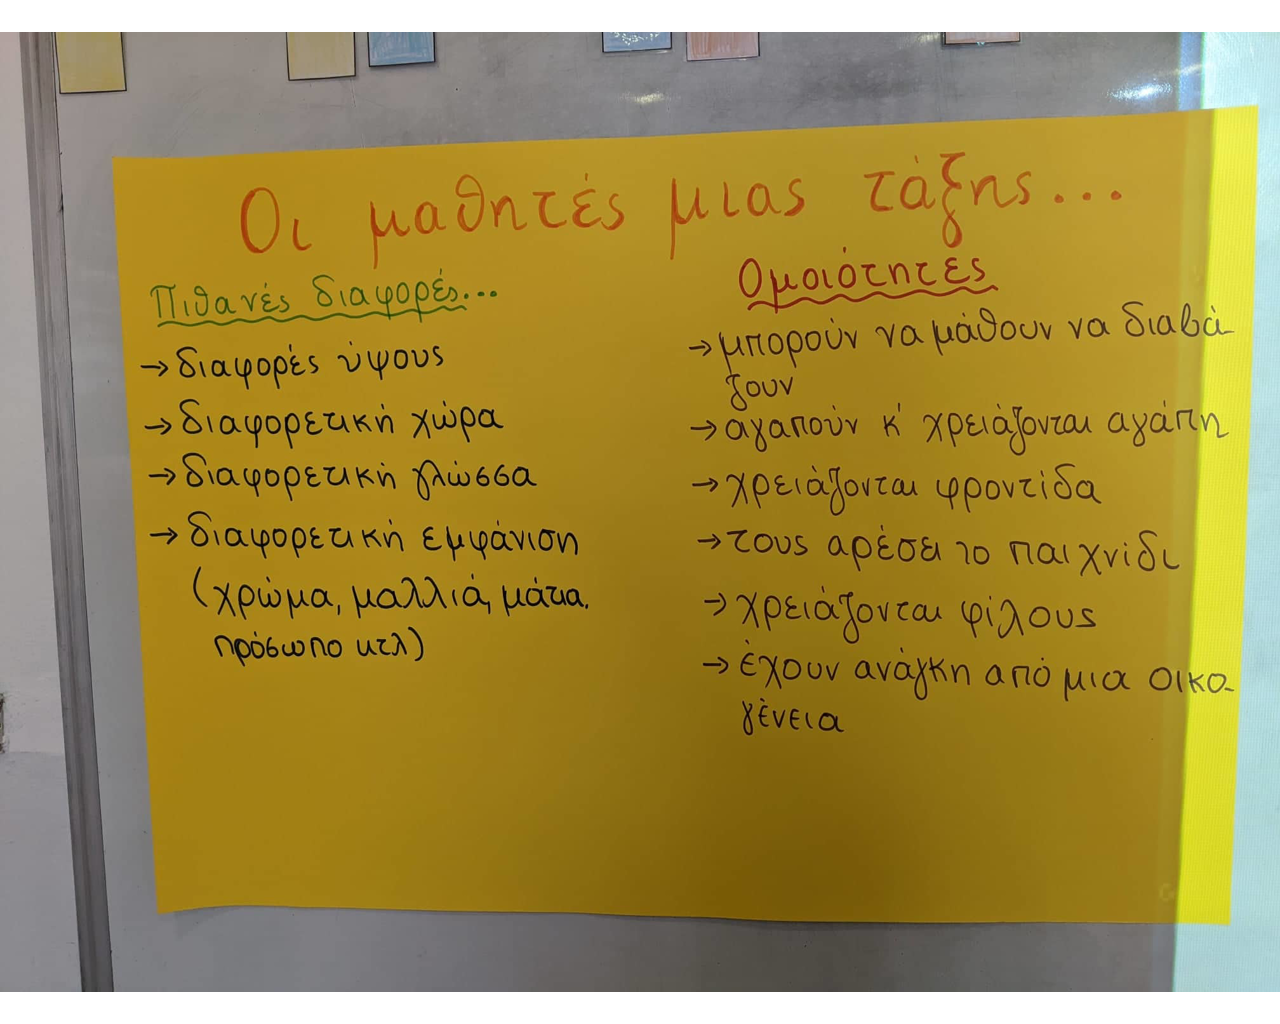 Οι μαθητές μιας τάξης...
Πιθανές διαφορές...
→ διαφορές ύψους
→ διαφορετική χώρα
→ διαφορετική γλώσσα
→ διαφορετική εμφάνιση
(χρώμα, μαλλιά, μάτια,
πρόσωπο κτλ)
Ομοιότητες
→ μπορούν να μάθουν να διαβά-
ζουν
→ αγαπούν κ' χρειάζονται αγάπη
→ χρειάζονται φροντίδα
→ τους αρέσει το παιχνίδι
→ χρειάζονται φίλους
→ έχουν ανάγκη από μια οικο-
γένεια